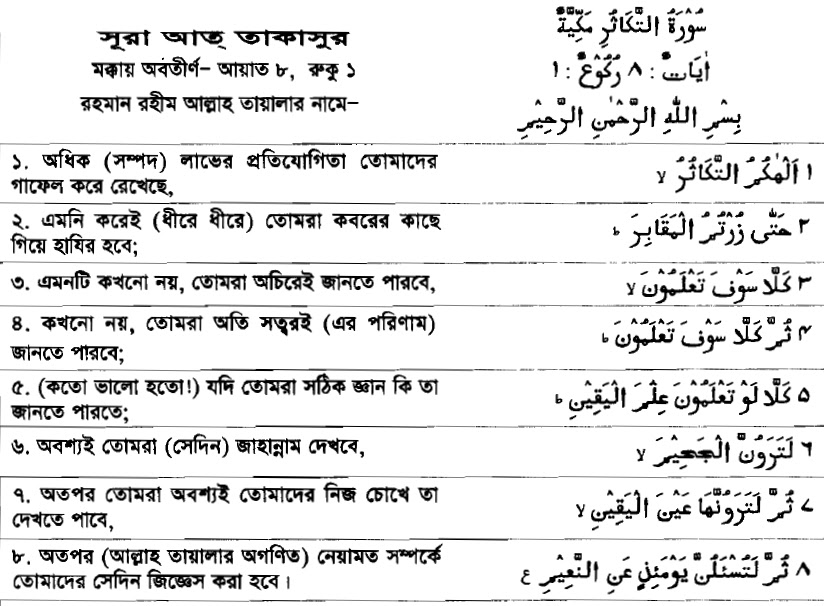 সূরা আত্ তাকাসুর
سُوْرَةُ التَّكَاثُرِ مَكِّيَّةٌ
মক্কায় অবতীর্ণ– আয়াত ৮, রুকু ১
اٰيَاتٌ : ٨ رُكُوْعٌ : ١
রহমান রহীম আল্লাহ তায়ালার নামে–
بِسْمِ اللّٰهِ الرَّحْمٰنِ الرَّحِيْمِ
১. অধিক (সম্পদ) লাভের প্রতিযোগিতা তোমাদের
গাফেল করে রেখেছে,
١ اَلْهٰكُمُ التَّكَاثُرُ لا
২. এমনি করেই (ধীরে ধীরে) তোমরা কবরের কাছে
গিয়ে হাযির হবে;
٢ حَتّٰى زُرْتُمُ الْمَقَابِرَ ط
৩. এমনটি কখনো নয়, তোমরা অচিরেই জানতে পারবে,
٣ كَلَّا سَوْفَ تَعْلَمُوْنَ لا
৪. কখনো নয়, তোমরা অতি সত্বরই (এর পরিণাম)
জানতে পারবে;
٤ ثُمَّ كَلَّا سَوْفَ تَعْلَمُوْنَ ط
৫. (কতো ভালো হতো!) যদি তোমরা সঠিক জ্ঞান কি তা
জানতে পারতে;
٥ كَلَّا لَوْ تَعْلَمُوْنَ عِلْمَ الْيَقِيْنِ ط
৬. অবশ্যই তোমরা (সেদিন) জাহান্নাম দেখবে,
٦ لَتَرَوُنَّ الْجَحِيْمَ لا
৭. অতপর তোমরা অবশ্যই তোমাদের নিজ চোখে তা
দেখতে পাবে,
٧ ثُمَّ لَتَرَوُنَّهَا عَيْنَ الْيَقِيْنِ لا
৮. অতপর (আল্লাহ তায়ালার অগণিত) নেয়ামত সম্পর্কে
তোমাদের সেদিন জিজ্ঞেস করা হবে।
٨ ثُمَّ لَتُسْئَلُنَّ يَوْمَئِذٍ عَنِ النَّعِيْمِ ع